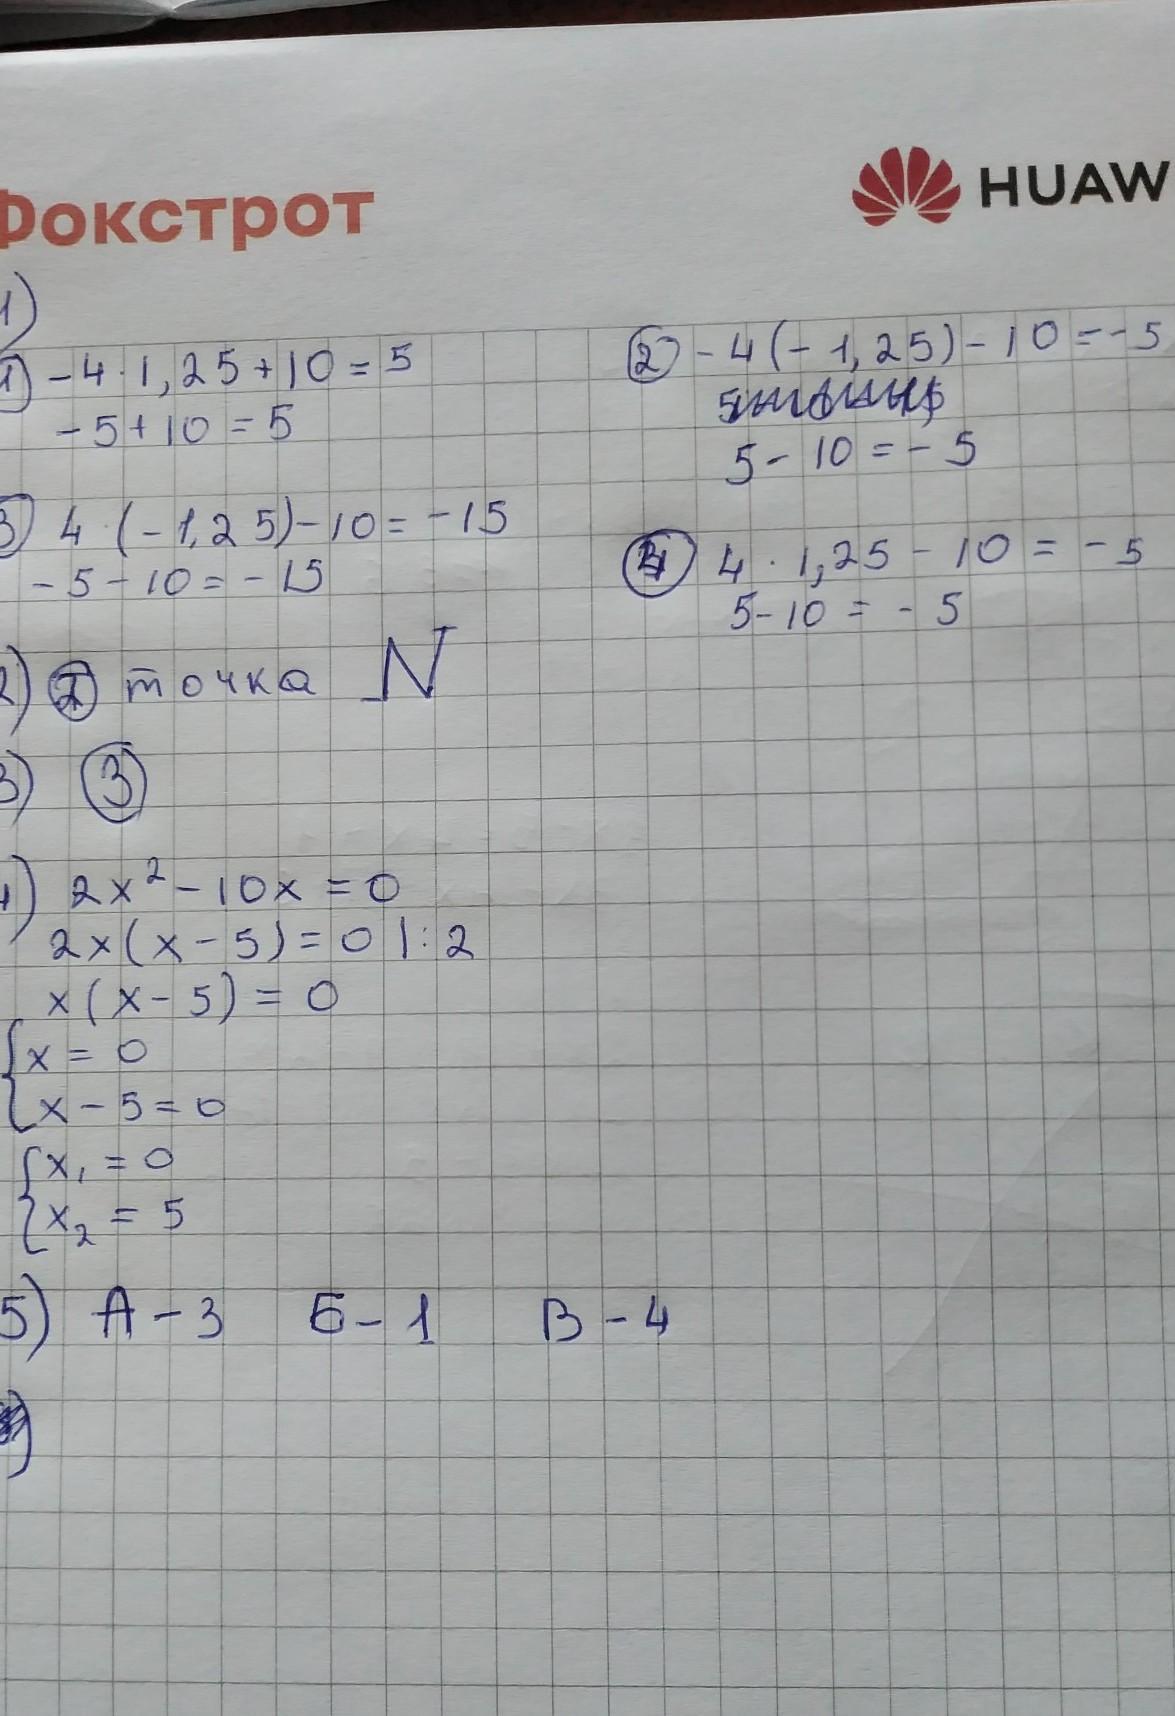 Фокстрот
HUAW
1)
1) -4·1,25+10=5
-5+10=5
2) -4(-1,25)-10=-5
5-10=-5
3) 4·(-1,25)-10=-15
-5-10=-15
4) 4·1,25-10=-5
5-10=-5
2) точка N
3) 3
4) 2x²-10x=0
2x(x-5)=0 |:2
x(x-5)=0
{x=0
x-5=0
{x₁=0
x₂=5
5) А-3 Б-1 В-4
)